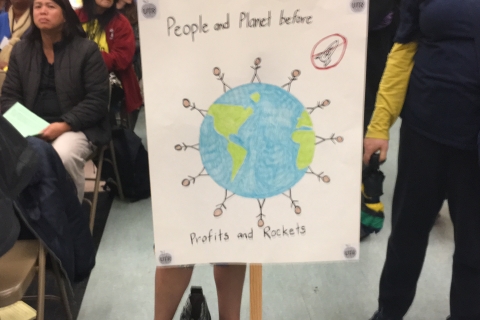 People and Planet before
Profits and Rockets